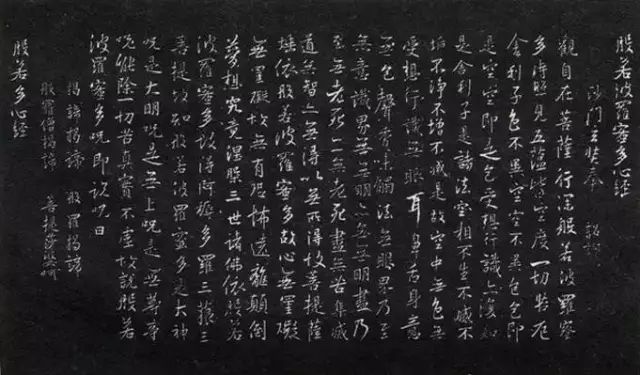 般若波羅蜜多心經
沙門玄奘奉 詔譯
觀自在菩薩行深般若波羅蜜
多時照見五蘊皆空度一切苦厄
舍利子色不異空空不異色色即
是空空即是色受想行識亦復如
是舍利子是諸法空相不生不滅不
垢不淨不增不減是故空中無色無
受想行識無眼耳鼻舌身意
無色聲香味觸法無眼界乃至
無意識界無無明亦無無明盡乃
至無老死亦無老死盡無苦集滅
道無智亦無得以無所得故菩提薩
埵依般若波羅蜜多故心無罣礙
無罣礙故無有恐怖遠離顛倒
夢想究竟涅槃三世諸佛依般若
波羅蜜多故得阿耨多羅三藐三
菩提故知般若波羅蜜多是大神
呪是大明呪是無上呪是無等等
呪能除一切苦真實不虛故說般若
波羅蜜多呪即說呪曰
揭諦揭諦 般羅揭諦
般羅僧揭諦 菩提莎婆呵
般若多心經